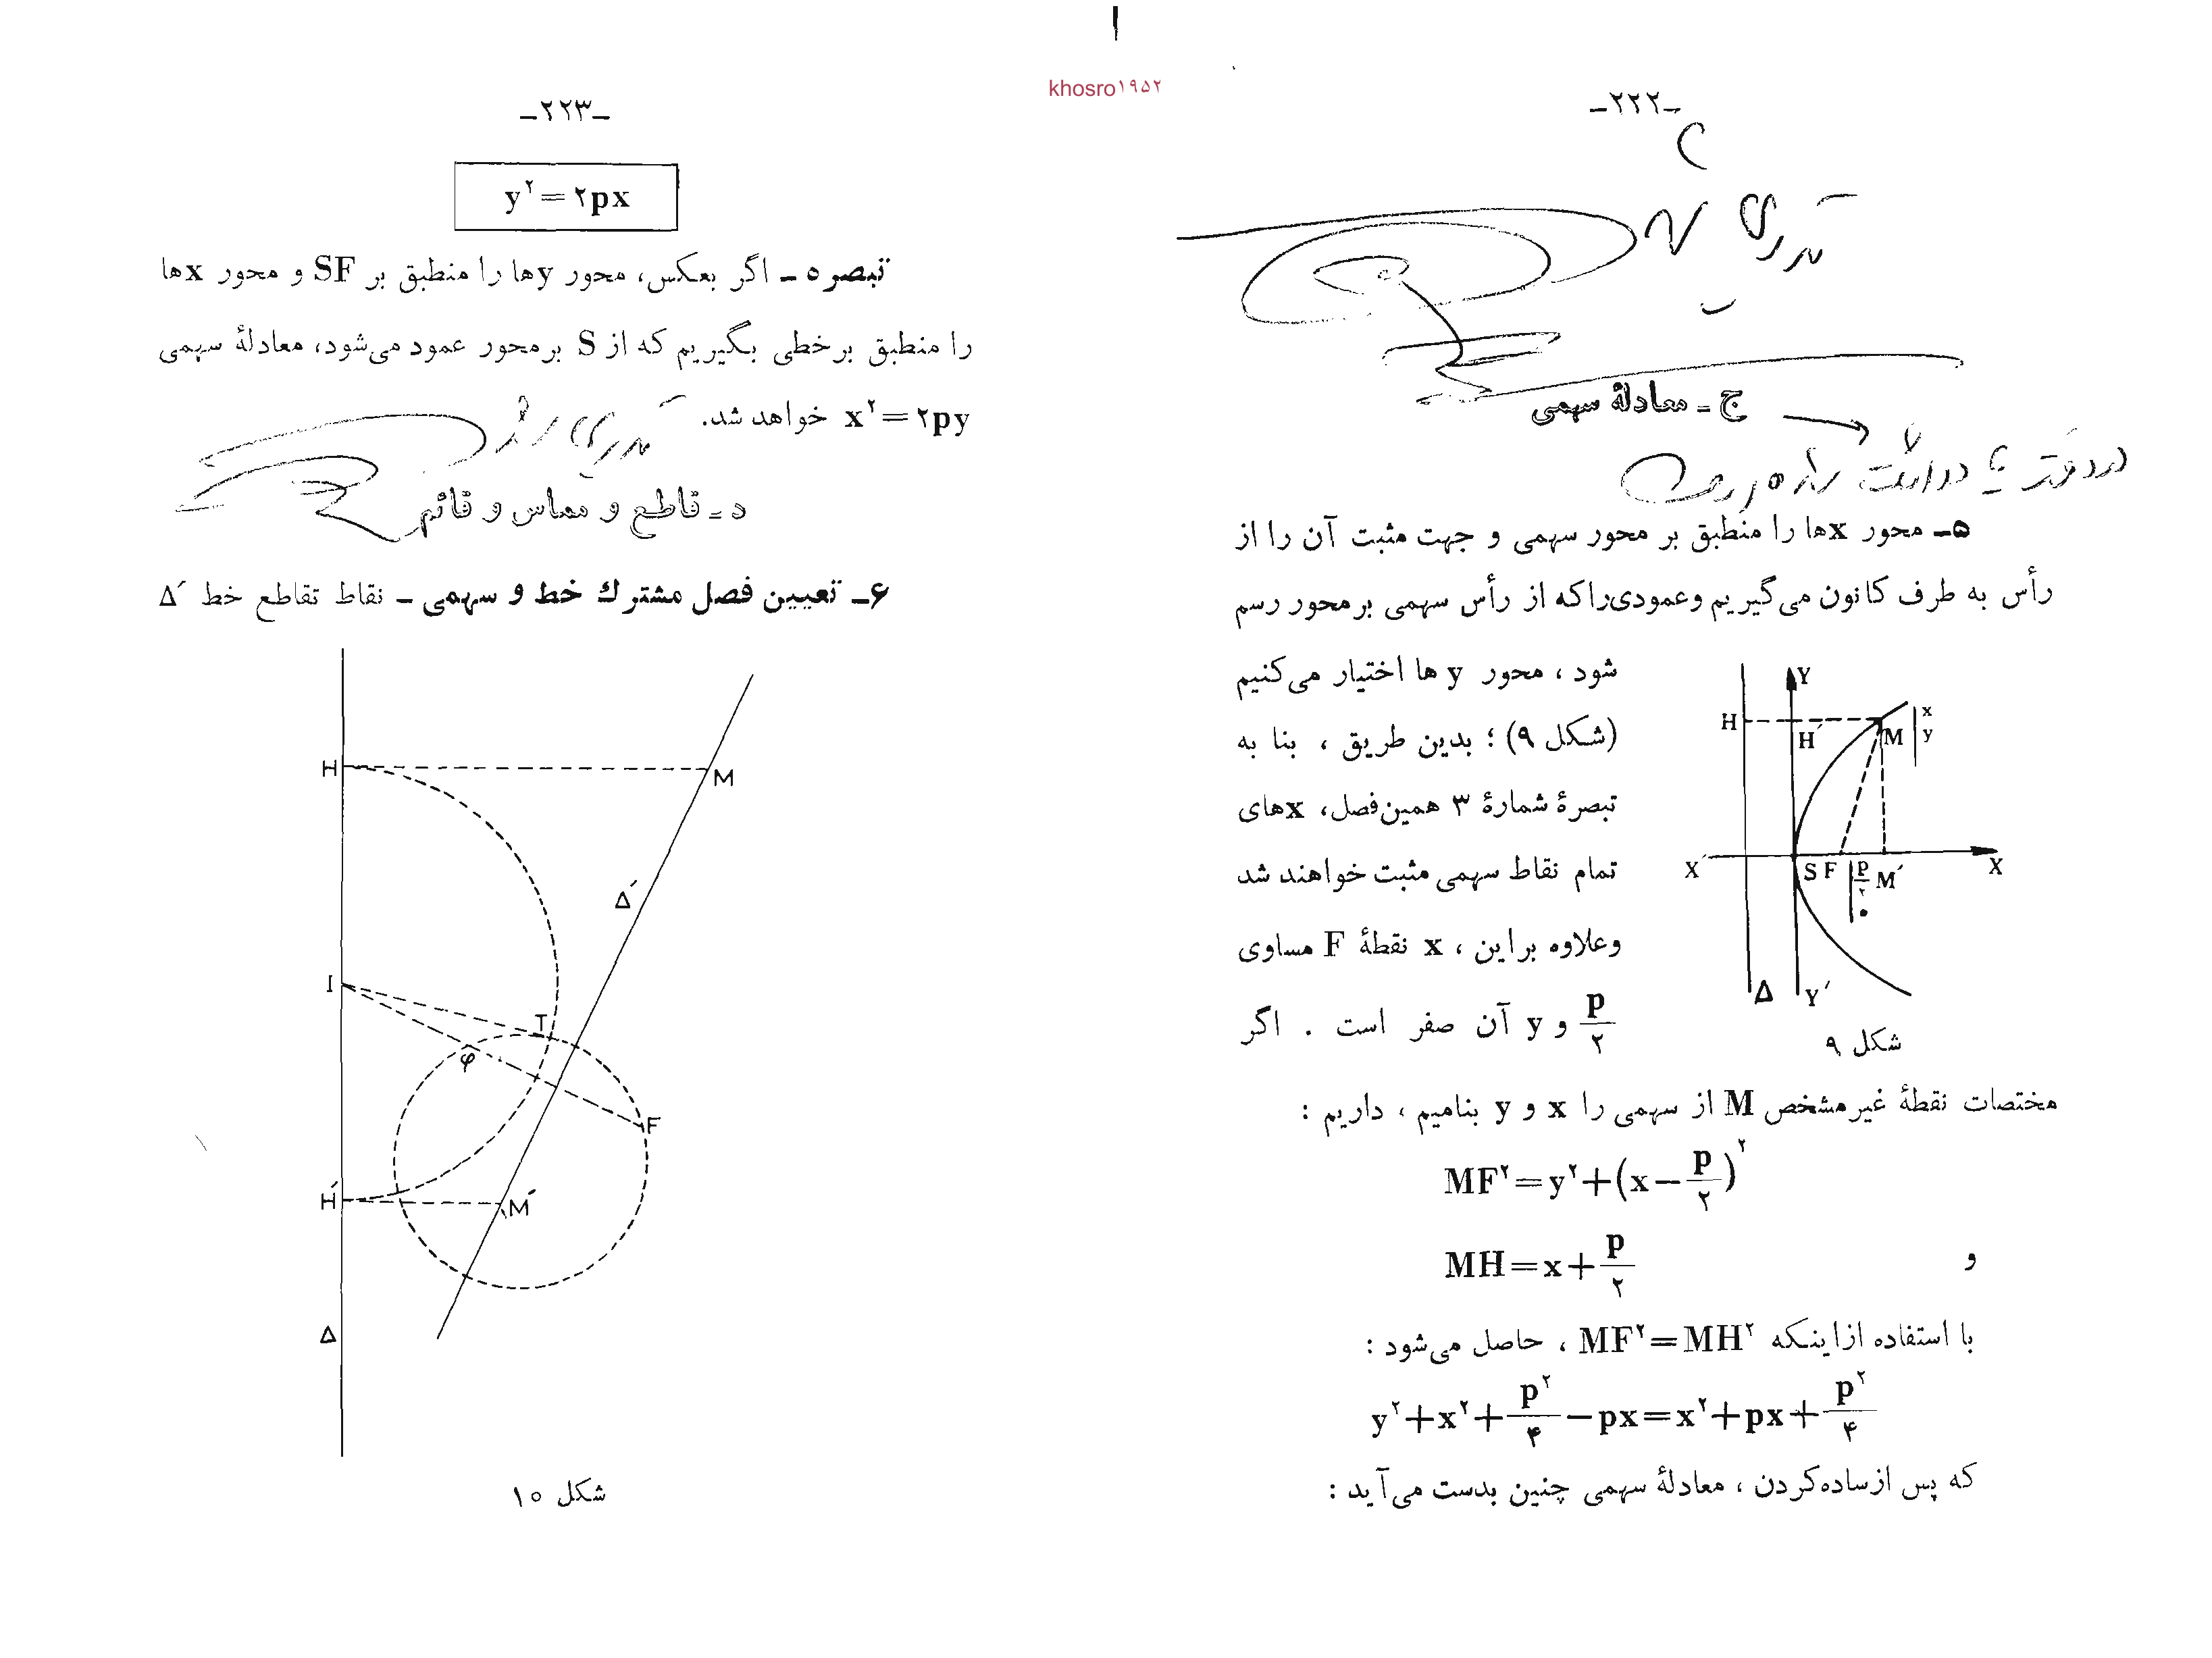 khosro۱۹۵۲
-۲۲۲-
ج ـ معادلهٔ سهمی
۵ـ محور xها را منطبق بر محور سهمی و جهت مثبت آن را از
رأس به طرف کانون می‌گیریم وعمودی‌راکه از رأس سهمی برمحور رسم
شود ، محور y ها اختیار می‌کنیم
(شکل ۹) ؛ بدین طریق ، بنا به
تبصرهٔ شمارهٔ ۳ همین‌فصل، xهای
تمام نقاط سهمی مثبت خواهند شد
وعلاوه براین ، x نقطهٔ F مساوی
p/۲ و y آن صفر است . اگر
Y
H H′ M x
y
X′ S F p/۲ M′ X
۰
Δ Y′
شکل ۹
مختصات نقطهٔ غیرمشخص M از سهمی را x و y بنامیم ، داریم :
MF²=y²+(x−p/۲)²
و MH=x+p/۲
با استفاده ازاینکه MF²=MH² ، حاصل می‌شود :
y²+x²+p²/۴−px=x²+px+p²/۴
که پس ازساده‌کردن ، معادلهٔ سهمی چنین بدست می‌آید :
-۲۲۳-
y²=۲px
تبصره ـ اگر بعکس، محور yها را منطبق بر SF و محور xها
را منطبق برخطی بگیریم که از S برمحور عمود می‌شود، معادلهٔ سهمی
x²=۲py خواهد شد.
د ـ قاطع و مماس و قائم
۶ـ تعیین فصل مشترك خط و سهمی ـ نقاط تقاطع خط Δ′
H M
Δ′
I
T
φ
F
H′ M′
Δ
شکل ۱۰